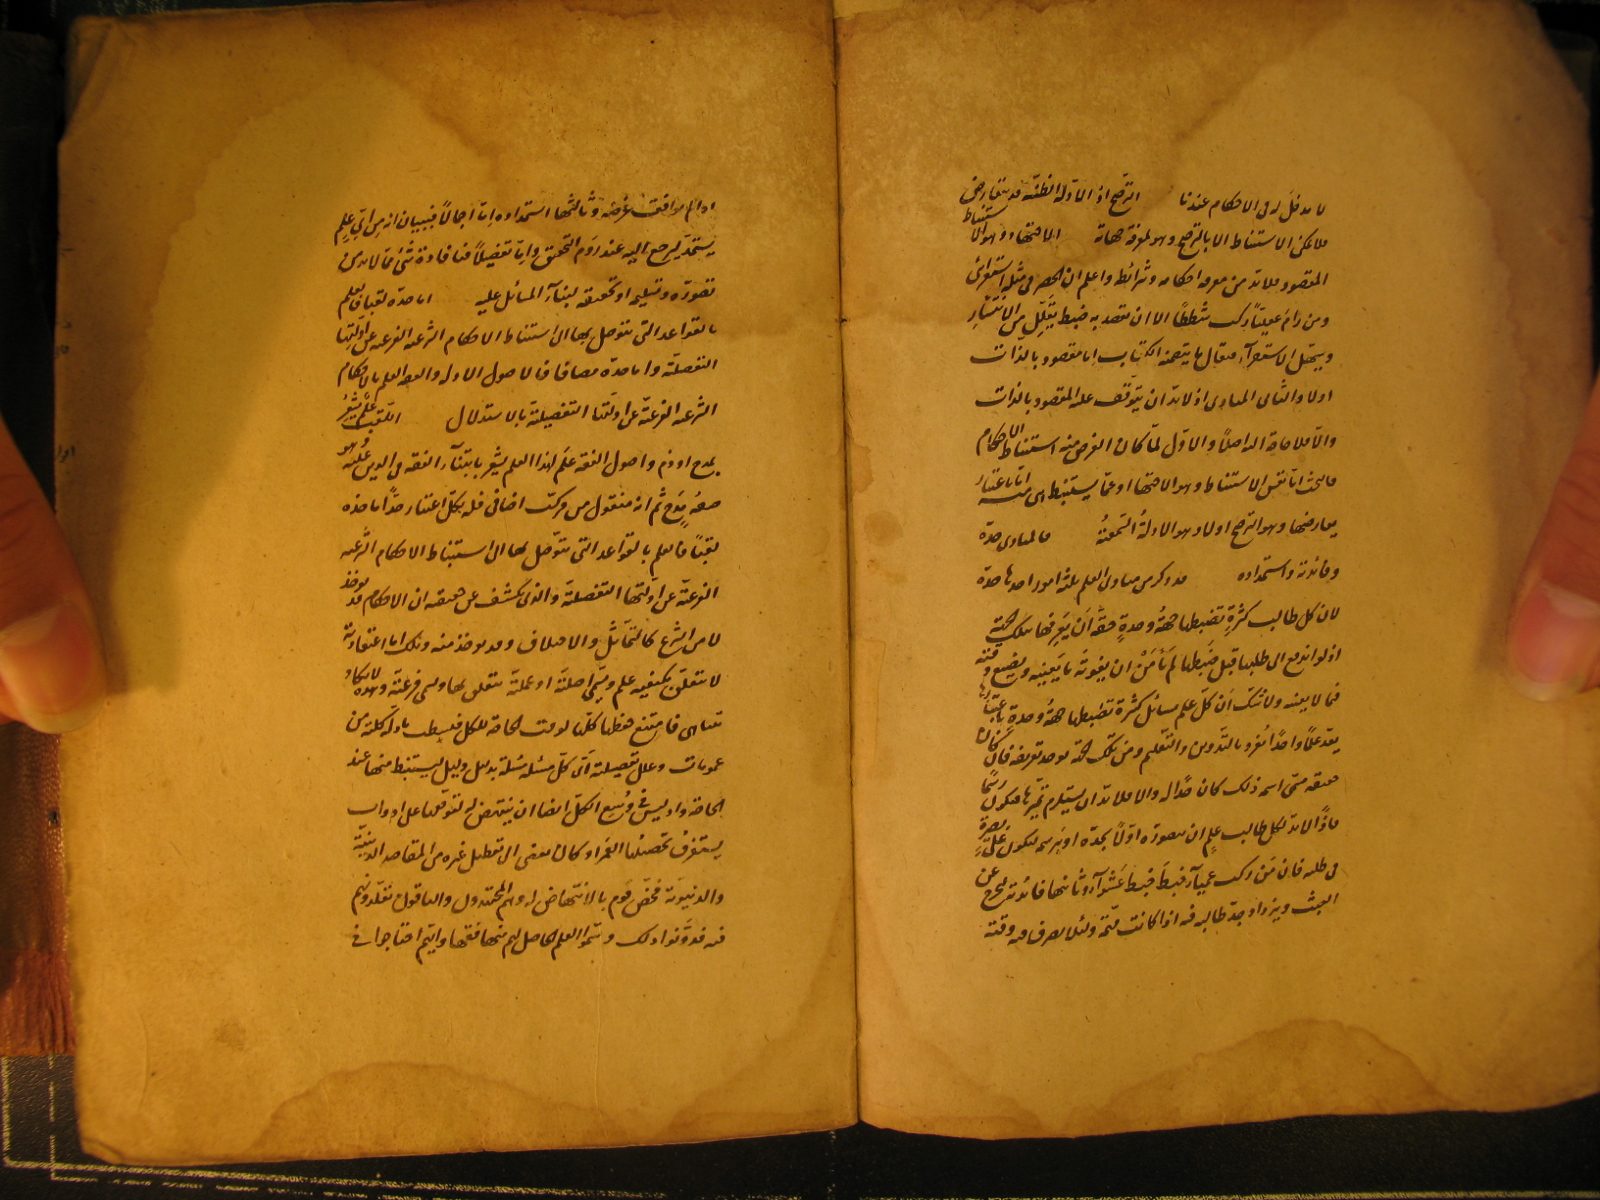 لا مدخل له في الاحكام عندنا الترجيح اذ الادلة الظنية قد تتعارض
فلا يمكن الاستنباط الا بالترجيح وهو لمعرفة جهاته الاجتهاد وهو الاستنباط
المقصود فلا بد من معرفة احكامه وشرائطه واعلم ان الحصر في مثله استقرائي
ومن رام عقليا ركب شططا الا ان يقصد به ضبط يقلل من الانتشار
ويسهل الاستقرآء فيقال ما يتضمنه الكتاب اما مقصود بالذات
اولا والثاني المبادي اذ لا بد ان يتوقف عليه المقصود بالذات
والا فلا حاجة اليه اصلا والاول لما كان الغرض منه استنباط الاحكام
فالبحث اما نفس الاستنباط وهو الاجتهاد او عما يستنبط هي منه اما باعتبار
تعارضها وهو الترجيح اولا وهو الادلة السمعية فالمبادي حده
وفائدته واستمداده قد ذكر من مبادي العلم ثلثة امور احدها حده
لان كل طالب كثرة تضبطها جهة وحدة حقه ان يعرفها بتلك الجهة
اذ لو اندفع الى طلبها قبل ضبطها لم يأمن ان يفوته ما يعنيه ويضيع وقته
فيما لا يعنيه ولا شك ان كل علم مسائل كثيرة تضبطها جهة وحدة باعتبارها
يعد علما واحدا يفرد بالتدوين والتعليم ومن تلك الجهة يوخذ تعريفه فان كان
حقيقة مسمى اسمه ذلك كان حدا له والا فلا بد ان يستلزم تميزها فيكون رسما
فاذا لا بد لكل طالب علم ان يتصوره اولا بحده او برسمه ليكون على بصيرة
في طلبه فان من ركب عميآء خبط خبط عشوآء وثانيها فائدته ليخرج عن
العبث ويزداد جد طالبه فيه اذا كانت مهمة ولئلا يصرف فيه وقته
اذا لم يوافق غرضه وثالثها استمداده اما اجمالا فببيان انه من اي علم
يستمد ليرجع اليه عند روم التحقيق واما تفصيلا فبافادة شئ مما لا بد من
تصوره وتسليمه او تحقيقه لبنآء المسائل عليه اما حده لقبا فالعلم
بالقواعد التي يتوصل بها الى استنباط الاحكام الشرعية الفرعية عن ادلتها
التفصيلية واما حده مضافا فالاصول الادلة والفقه العلم بالاحكام
الشرعية الفرعية عن ادلتها التفصيلية بالاستدلال اللقب علم يشعر
بمدح او ذم واصول الفقه علم لهذا العلم يشعر بابتنآء الفقه في الدين عليه وهو
صفة مدح ثم انه منقول من مركب اضافي فله بكل اعتبار حد اما حده
لقبا فالعلم بالقواعد التي يتوصل بها الى استنباط الاحكام الشرعية
الفرعية عن ادلتها التفصيلية والذي يكشف عن حقيقته ان الاحكام قد يوخذ
لا من الشرع كالتماثل والاختلاف وقد يوخذ منه وتلك اما اعتقادية
لا تتعلق بكيفية عمل وتسمى اصلية او عملية تتعلق بها وتسمى فرعية وهذه لا تكاد
تتناهى فامتنع حفظها كلها لوقت الحاجة للكل فنيطت بادلة كلية من
عمومات وعلل تفصيلية اي كل مسئلة مسئلة بدليل دليل ليستنبط منها عند
الحاجة واذ ليس في وسع الكل ايضا ان ينتهض له لتوقفها على ادوات
يستغرق تحصيلها العمر او كان يفضي الى تعطيل غيره من المقاصد الدينية
والدنيوية فخص قوم بالانتهاض له وهم المجتهدون والباقون يقلدونهم
فيه فدونوا ذلك وسموا العلم الحاصل لهم منها فقها وانهم احتاجوا في